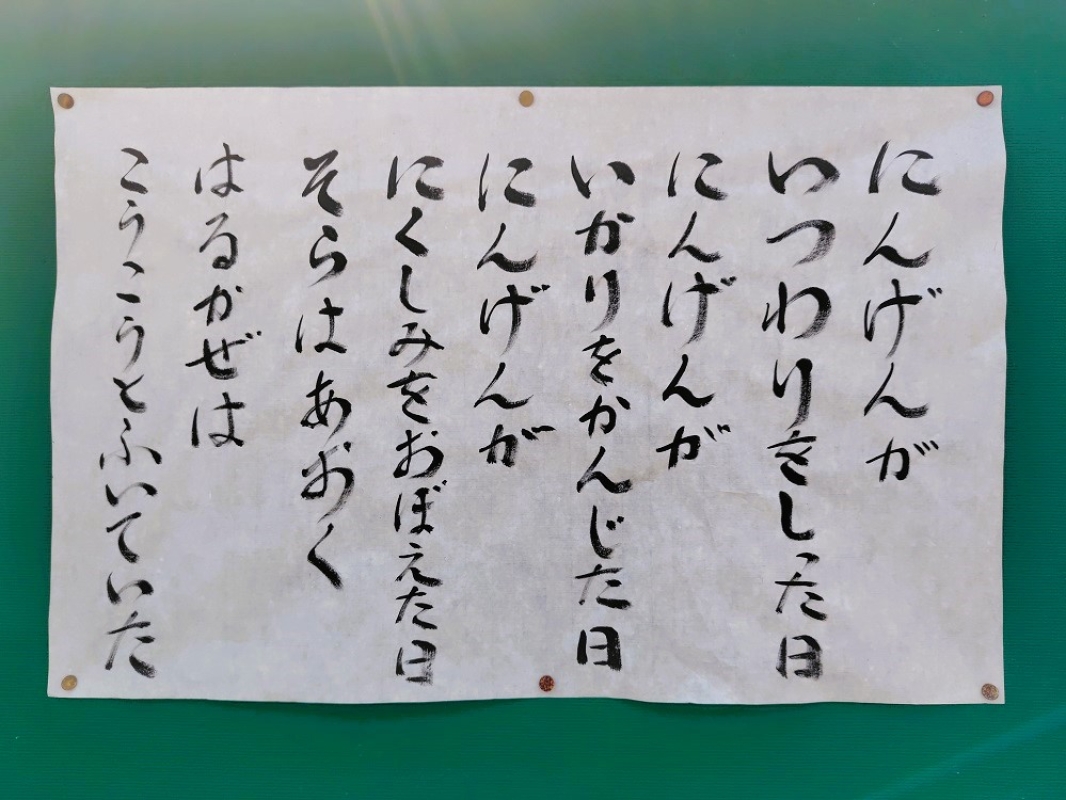 にんげんが
いつわりをしった日
にんげんが
いかりをかんじた日
にんげんが
にくしみをおぼえた日
そらはあおく
はるかぜは
こうこうとふいていた